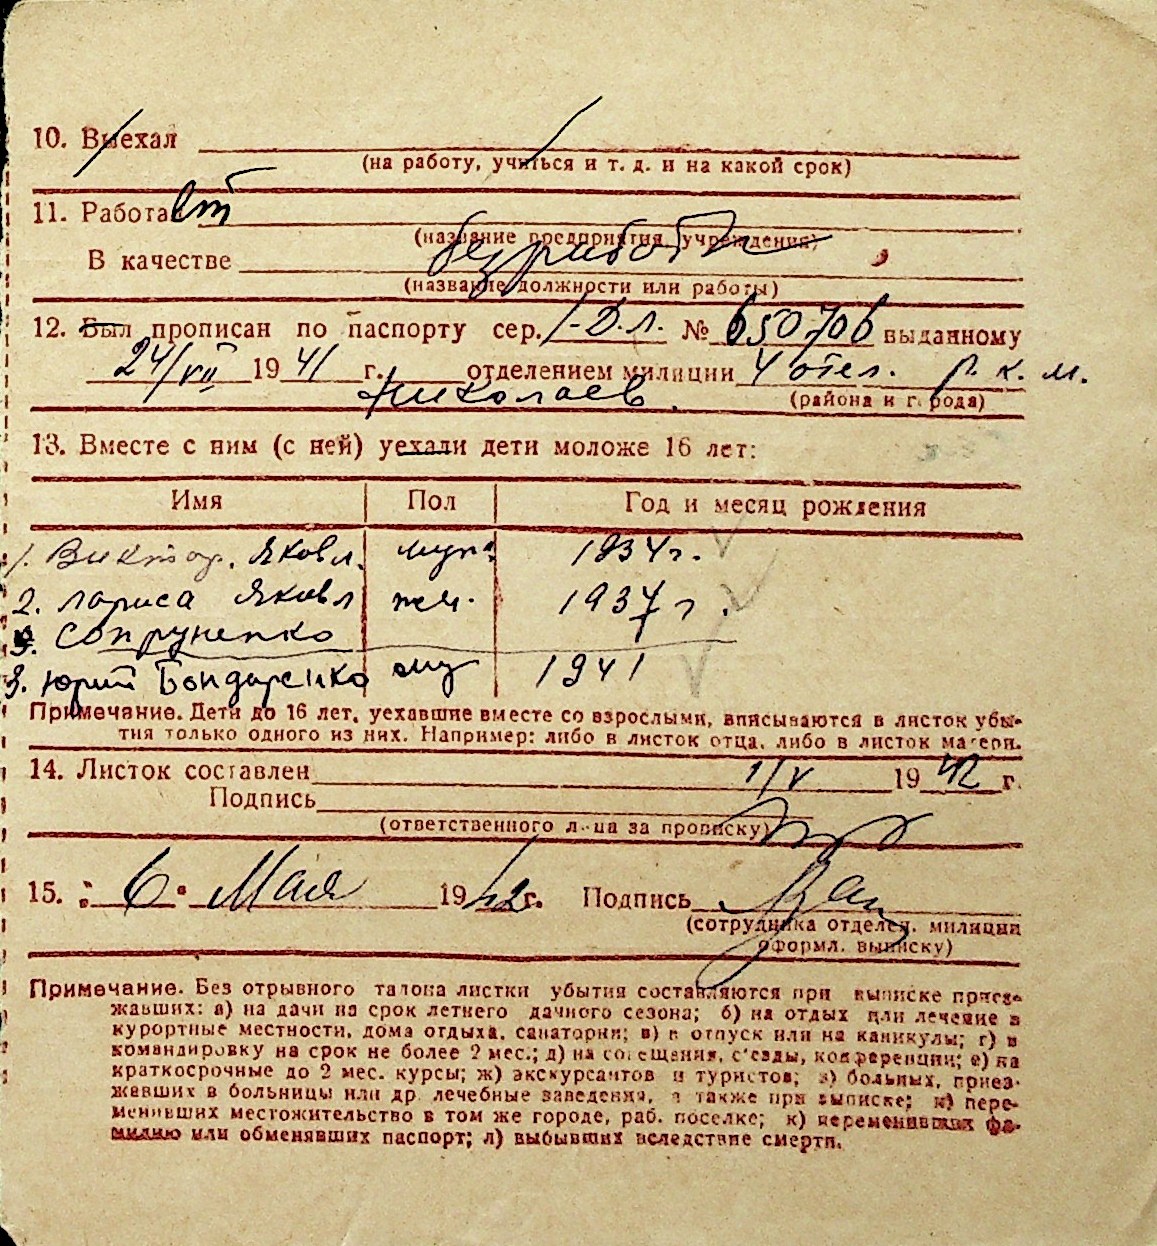 10. Выехал
(на работу, учиться и т. д. и на какой срок)
11. Работает
(название предприятия, учреждения)
В качестве безработн
(название должности или работы)
12. Был прописан по паспорту сер. I-Д.Л. № 650706 выданному
24/VII 1941 г. отделением милиции 4 отел. р. к. м.
Николаев. (района и города)
13. Вместе с ним (с ней) уехали дети моложе 16 лет:
Имя Пол Год и месяц рождения
1. Виктор. Яковл. муж. 1934 г.
2. Лариса Яковл жен. 1937 г.
Сопруненко
3. Юрий Бондаренко муж 1941
Примечание. Дети до 16 лет, уехавшие вместе со взрослыми, вписываются в листок убы-
тия только одного из них. Например: либо в листок отца, либо в листок матери.
14. Листок составлен 1/V 1942 г.
Подпись
(ответственного лица за прописку)
15. 6. Мая 1942 г. Подпись
(сотрудника отделен. милиции
оформл. выписку)
Примечание. Без отрывного талона листки убытия составляются при выписке приез-
жавших: а) на дачи на срок летнего дачного сезона; б) на отдых или лечение в
курортные местности, дома отдыха, санатории; в) в отпуск или на каникулы; г) в
командировку на срок не более 2 мес.; д) на совещания, съезды, конференции; е) на
краткосрочные до 2 мес. курсы; ж) экскурсантов и туристов; з) больных, приез-
жавших в больницы или др. лечебные заведения, а также при выписке; и) пере-
менивших местожительство в том же городе, раб. поселке; к) переменивших фа-
милию или обменявших паспорт; л) выбывших вследствие смерти.